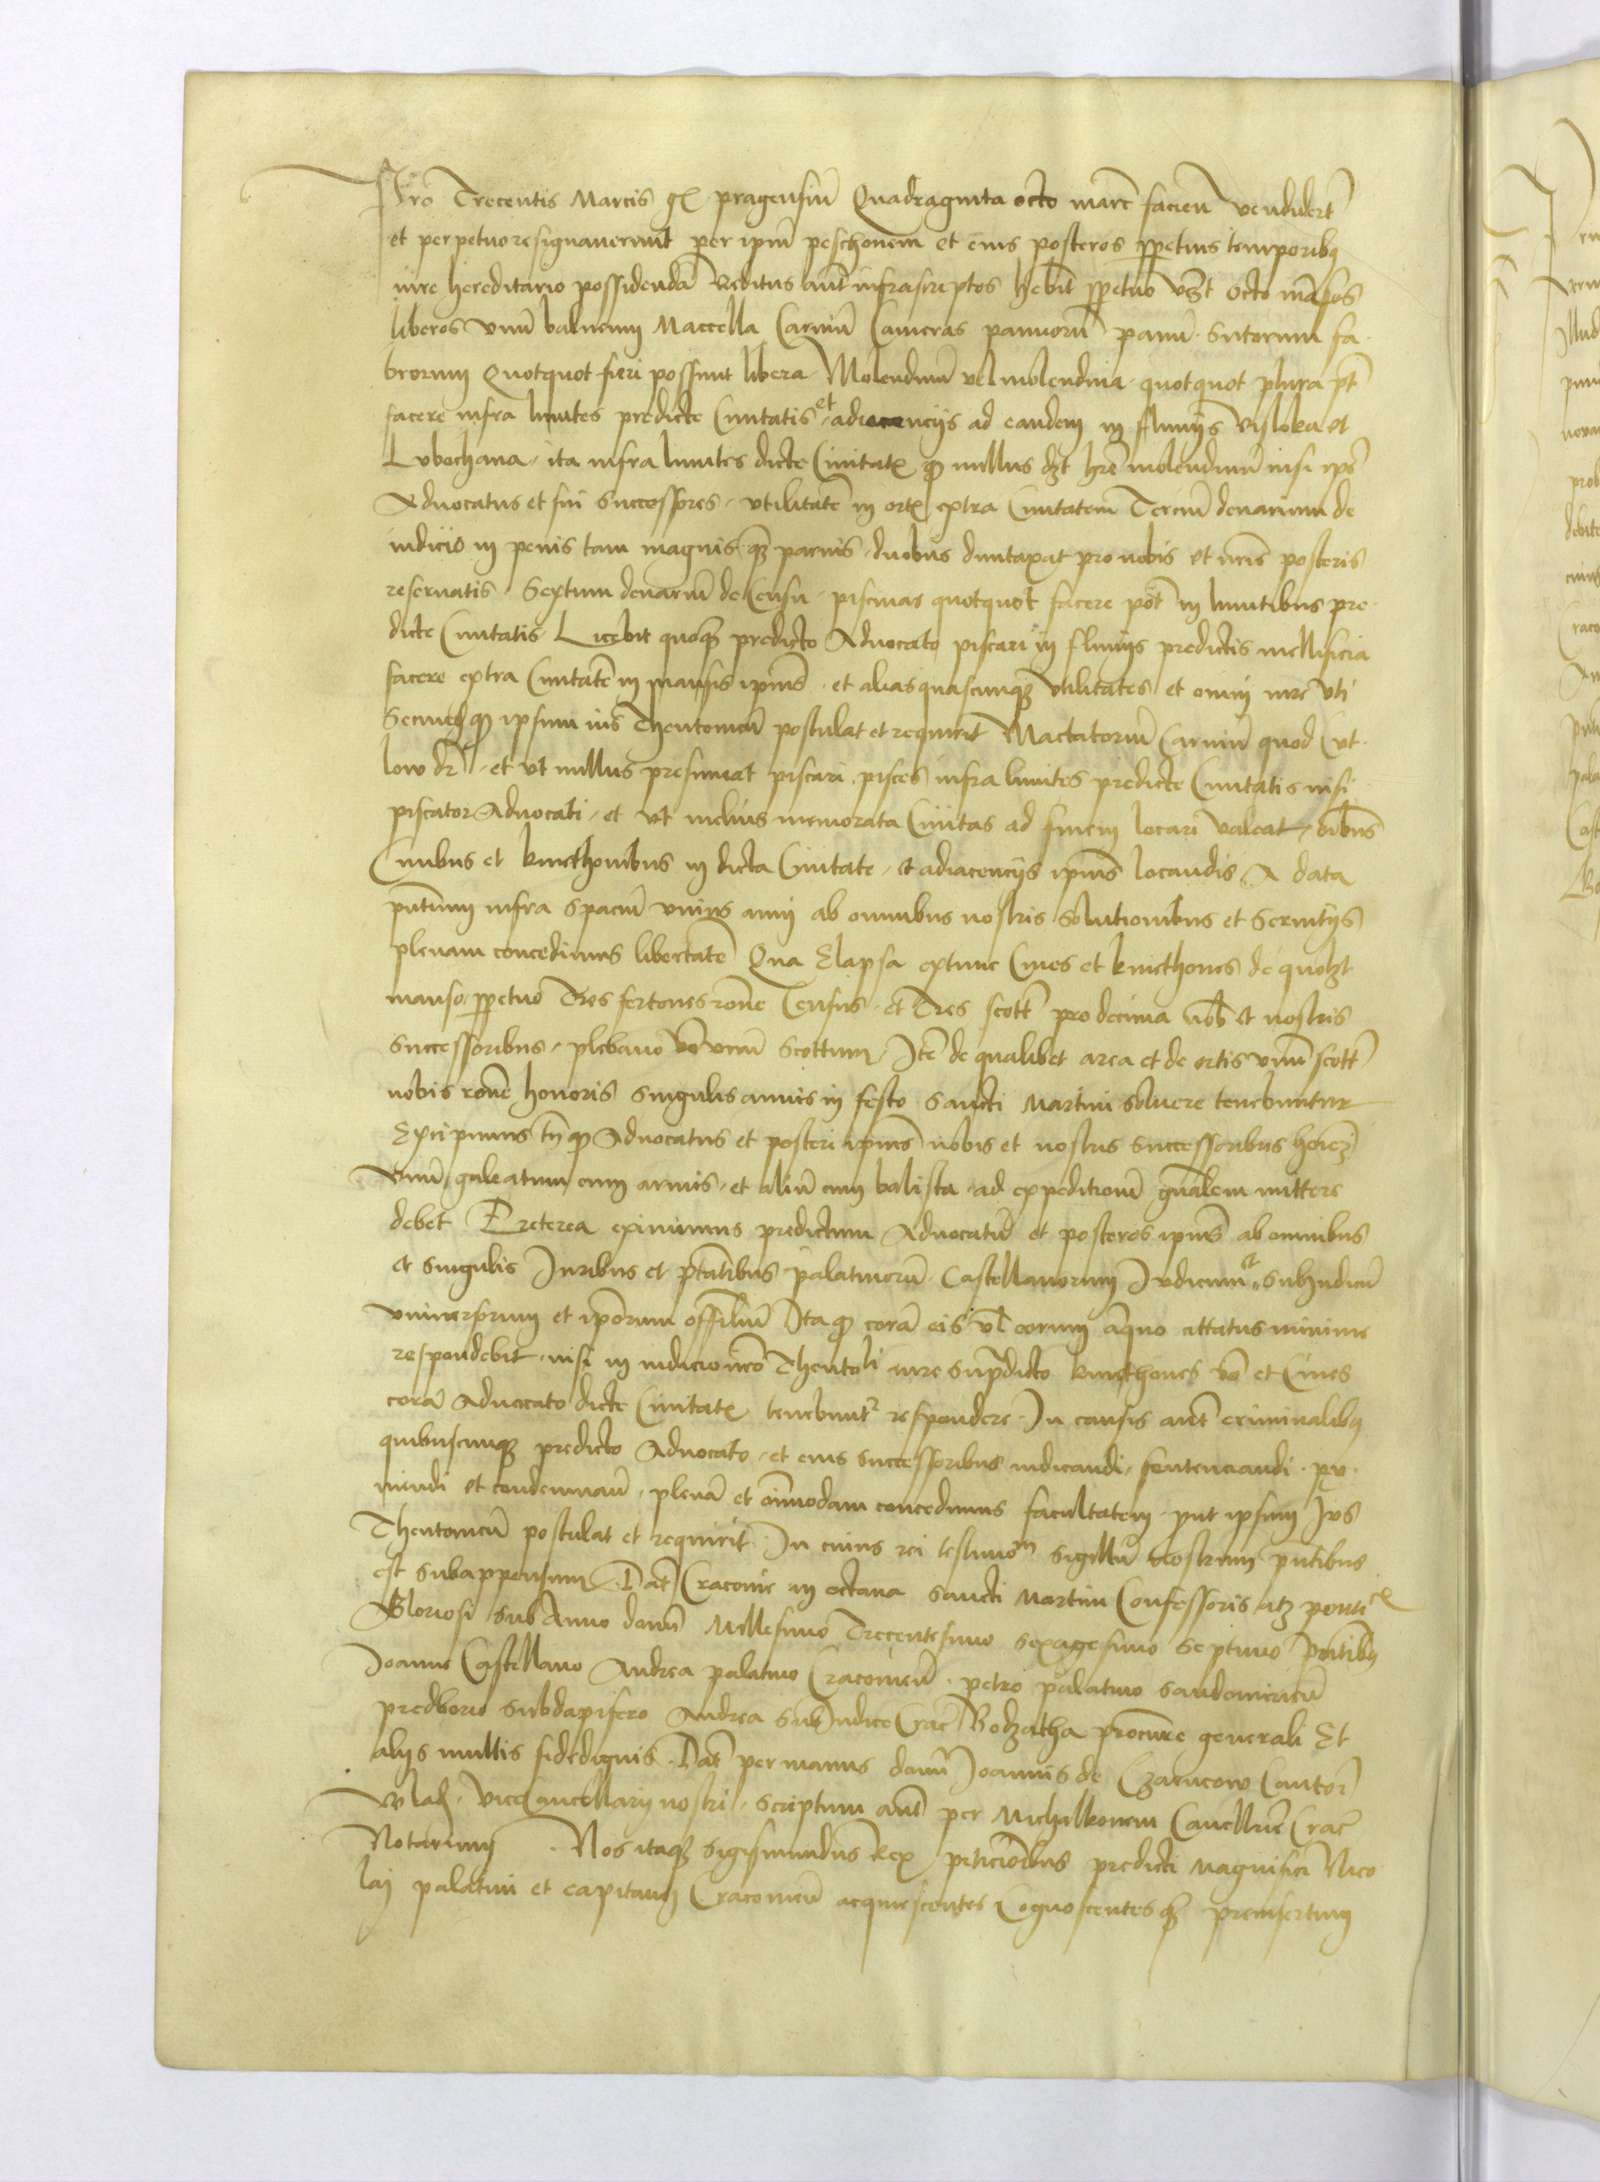 Pro Trecentis Marcis gr pragensiu Quadraginta octo marc facien vendidert
et perpetuo resignaverunt per ipm peschonem et eius posteros ppetuis temporibq
iure hereditario possidenda Reditus aut infrascriptos hebit ppetuo vzt Octo mansos
liberos vnu balneum Maccella Carniu Cameras pannoru panu sutorum fa
brorum Quotquot fieri possunt libera Molendinu vel molendina quotquot plura pt
facere infra limites predicte Civitatis et adiacencijs ad eandem in fluvijs visloka et
Lubochana ita infra limites dicte Civitate q nullus dzt hre molendinu nisi ips
Advocatus et sui successores vtilitate in ort extra Civitatem Terciu denarium de
iudicio in penis tam magnis q parvis duobus duntaxat pro nobis et nris posteris
reservatis Sextum denariu de Censu piscinas quotquot facere pot in limitibus pre
dicte Civitatis Licebit quoq predicto Advocato piscari in fluvijs predictis mellificia
facere extra Civitate in mansis ipius et alias quascunq vtilitates et omni iure vti
Secud q ipsum ius Theutonicu postulat et requirit Mactatoriu Carniu quod Cut
low dr et vt nullus presumat piscari pisces infra limites predicte Civitatis nisi
piscator Advocati et vt melius memorata Civitas ad finem locari valeat oibus
Civibus et kmethonibus in dicta Civitate et adiacencijs ipius locandis A data
pntium infra spaciu vnius anni ab omnibus nostris solutionibus et Servitijs
plenam concedimus libertate Qua Elapsa extunc Cives et kmethones de quolzt
manso ppetuo Tres fertones rone Census et Tres scott pro decima nob et nostris
successoribus plebano vo vnu scottum Ite de qualibet area et de ortis vnu scott
nobis rone honoris singulis annis in festo Sancti Martini solvere tenebuntur
Excipimus tn q Advocatus et posteri ipius nobis et nostris successoribus
vnu galeatum cum armis et aliu cum balista ad expeditionu gnalem mittere
debet Preterea eximimus predictum Advocatu et posteros ipius ab omnibus
et singulis Juribus et ptatibus palatinoru Castellanorum Judicum et subiudicu
vniversorum et ipsorum offilium Ita q cora eis vl eorum aliquo cittatus minime
respondebit nisi in iudicio nro Theuto li iure supradicto kmethones vo et Cives
cora Advocato dicte Civitate tenebunt respondere In causis aut criminalibq
quibuscunq predicto Advocato et eius successoribus iudicandi sentenciandi pu
niendi et condemnan plena et oimodam concedimus facultatem put ipsum Jus
Theutonicu postulat et requirit In cuius rei testimon sigillu nostrum pntibus
est subappensum Dat Cracovie in octava Sancti Martini Confessoris atz ponti
Gloriosi Sub Anno domi Millesimo Trecentesimo sexagesimo septimo pntibq
Joanne Castellano Andrea palatino Cracovien petro palatino Sandomirien
predborio subdapifero Andrea Subiudice Crac Bodzatha procure generali Et
alijs multis fidedignis Dat per manus domi Joannis de Czarncow Cantor
Wlad Vice Cancellarij nostri Scriptum aut per Michalkonem Cancellrie Crac
Notarium Nos itaq Sigismundus Rex peticionibus predicti Magnifici Nico
lai palatini et capitanei Cracovien acquiescentes Cognoscentes q preinsertum